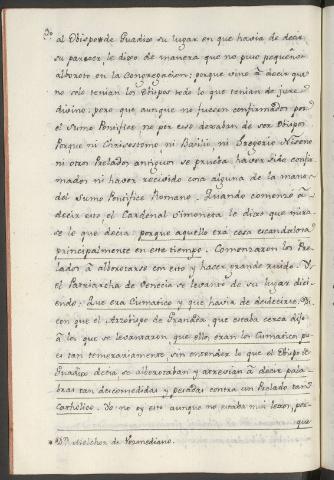 30
al Obispo de Guadix su lugar en que havia de decir
su parecer, le dixo de manera que no puso pequeño
alboroto en la Congregacion: porque vino a decir que
no solo tenian los Obispos todo lo que tenian de jure
divino: pero que aunque no fuesen confirmados por
el Sumo Pontifice no por eso dexaban de ser Obispos
Porque ni Chrisostomo ni Basilio ni Gregorio Niseno
ni otros Prelados antiguos se prueba haver sido confir-
mados ni haver recivido cosa alguna de la mano
del Sumo Pontifice Romano. Quando comenzò a
decir esto el Cardenal Simoneta le dixo que mira-
se lo que decia: porque aquello era cosa escandalosa
principalmente en este tiempo. Comenzaron los Pre-
lados a alborotarse con esto y hacer grande ruido. Y
el Patriarcha de Venecia se levanto de su lugar dici-
endo: Que era Cismatico y que havia de desdecirse. Di-
cen que el Arzobispo de Granada que estaba cerca dixo
a los que se levantaron que ellos eran los Cismaticos pu-
es tan temerariamente sin entender lo que el Obispo de
Guadix decia se alborotaban y atrevian a decir pala-
bras tan descomedidas y pesadas contra un Prelado tan
Catholico. Yo no oy esto aunque no estaba mui lexos, por-
que
D.n Melchor de Vozmediano.